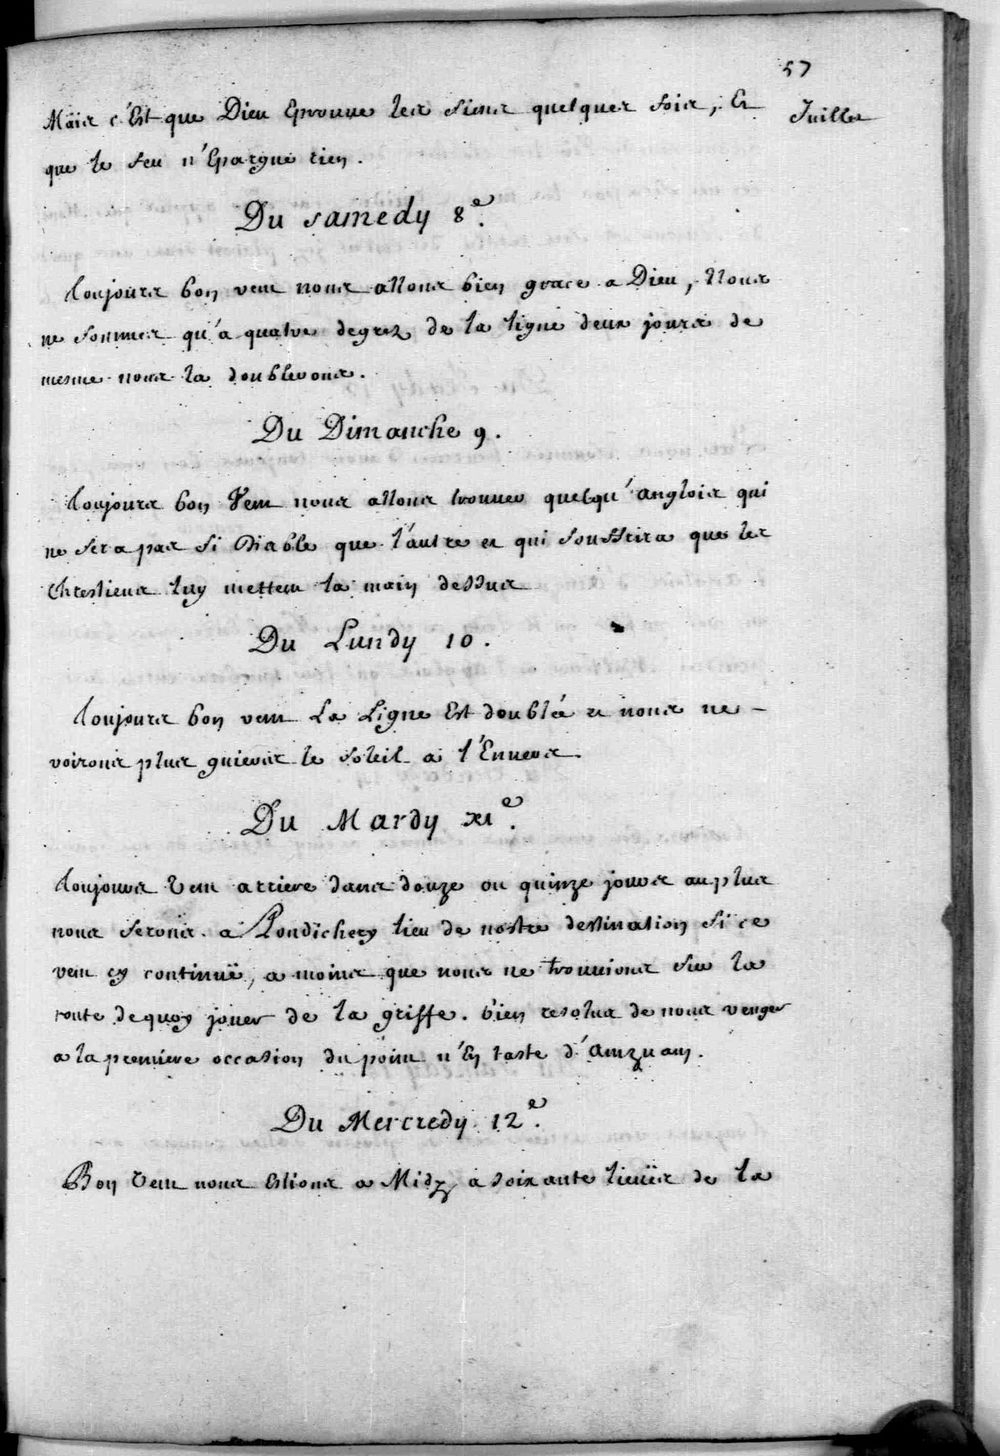 57
Juillet
Mais c'Est que Dieu Eprouue les siens quelques fois, Et
que le feu n'Epargne rien.
Du samedy 8e.
Toujours bon vent nous allons bien grace a Dieu, Nous
ne sommes qu'a quatre degrez de la ligne deux jours de
mesme nous la doublerons.
Du Dimanche 9.
Toujours bon Vent nous allons trouuer quelqu'anglois qui
ne sera pas si Diable que l'autre et qui souffrira que les
Chrestiens luy mettent la main dessus
Du Lundy 10.
Toujours bon vent La Ligne Est doublée et nous ne -
voirons plus guieres le soleil a l'Enuers.
Du Mardy xie.
Toujours Vent arriere dans douze ou quinze jours au plus
nous serons a Pondichery lieu de nostre destination si ce
vent cy continuë, a moins que nous ne trouuions sur la
route dequoy jouer de la griffe. bien resolus de nous venger
a la premiere occasion du point n'En taste d'
Du Mercredy 12e.
Bon Vent nous Estions a Midy a soixante lieuës de la